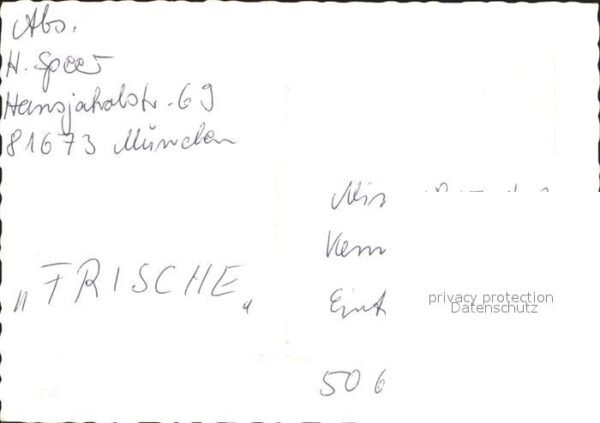 Abs.
H. Speer
Hansjakobstr. 69
81673 München
„FRISCHE"
Kem
Eint
privacy protection
Datenschutz
50 6